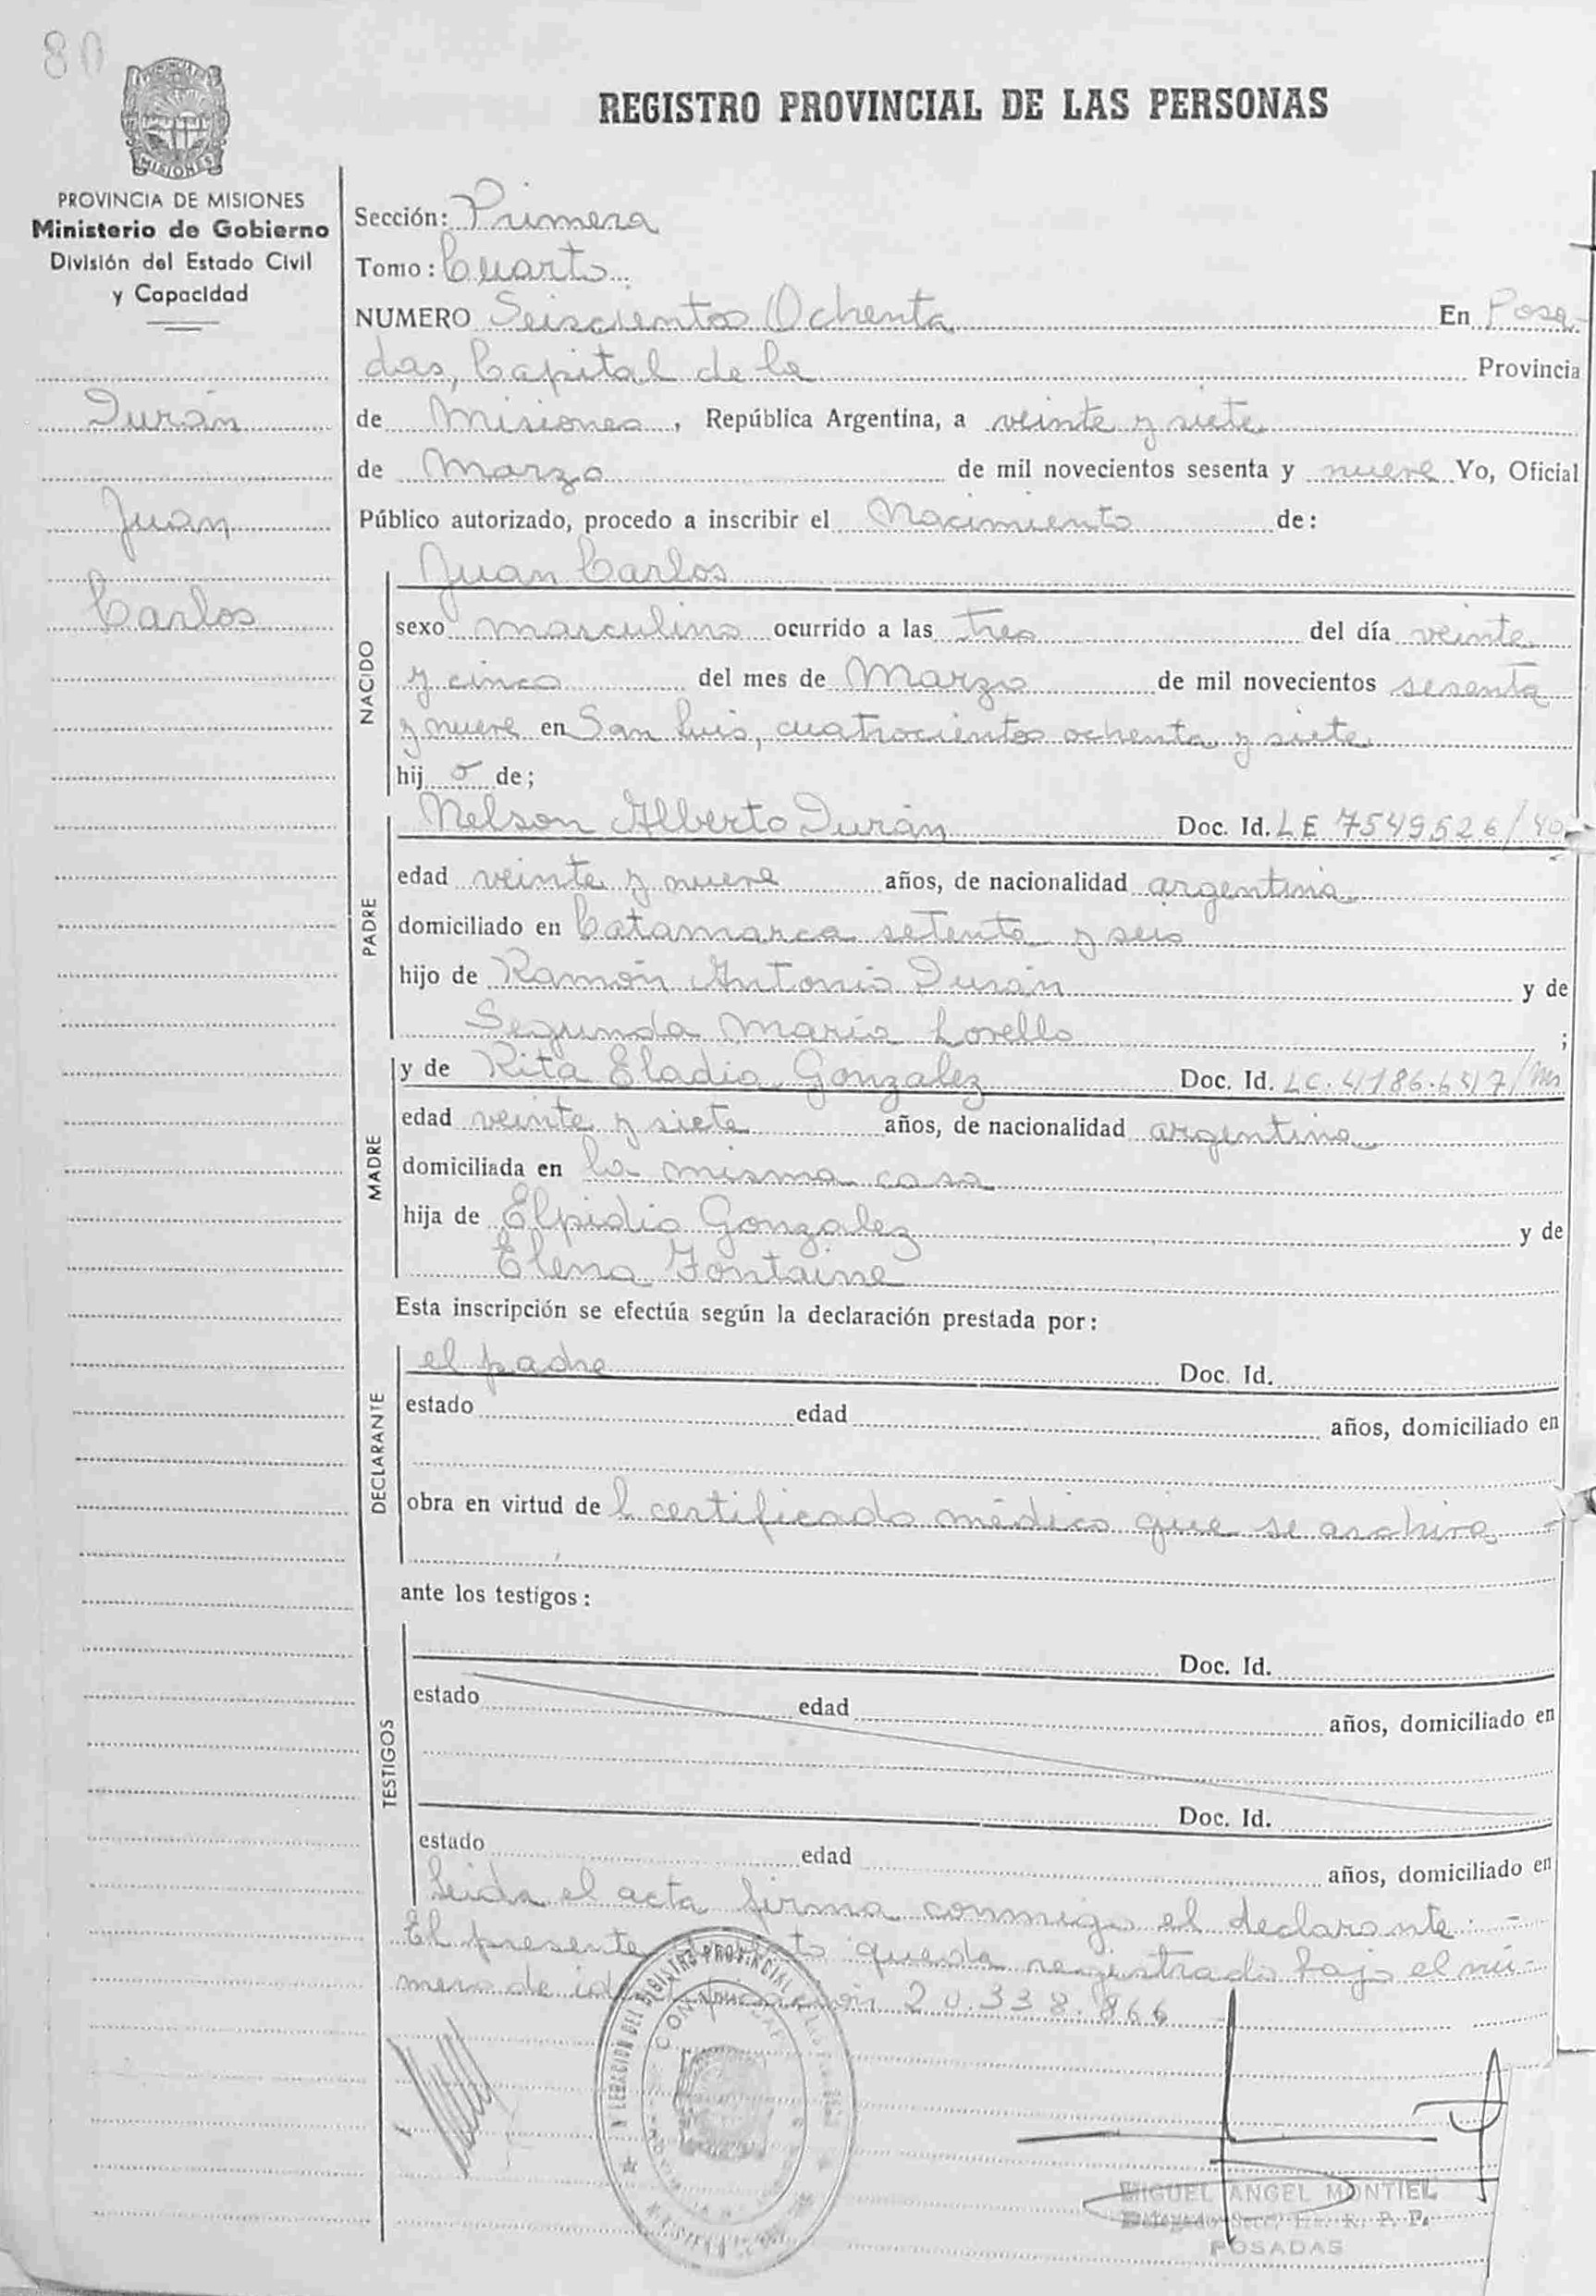 80
REGISTRO PROVINCIAL DE LAS PERSONAS
MISIONES
PROVINCIA DE MISIONES
Ministerio de Gobierno
División del Estado Civil
y Capacidad
Durán
Juan
Carlos
Sección: Primera
Tomo: Cuarto
NUMERO Seiscientos Ochenta En Posa-
das, Capital de la Provincia
de Misiones, República Argentina, a veinte y siete
de Marzo de mil novecientos sesenta y nueve Yo, Oficial
Público autorizado, procedo a inscribir el Nacimiento de:
NACIDO
Juan Carlos
sexo masculino ocurrido a las tres del día veinte
y cinco del mes de Marzo de mil novecientos sesenta
y nueve en San Luis, cuatrocientos ochenta y siete
hij o de;
PADRE
Nelson Alberto Durán Doc. Id. LE 7549526/
edad veinte y nueve años, de nacionalidad argentina
domiciliado en Catamarca setenta y seis
hijo de Ramón Antonio Durán y de
Segunda María Lorello ;
MADRE
y de Rita Eladia Gonzalez Doc. Id. LC.
edad veinte y siete años, de nacionalidad argentina
domiciliada en la misma casa
hija de Elpidio Gonzalez y de
Elena Fontaine
Esta inscripción se efectúa según la declaración prestada por:
DECLARANTE
el padre Doc. Id.
estado edad años, domiciliado en
obra en virtud de l certificado médico que se archiva -
ante los testigos:
TESTIGOS
Doc. Id.
estado edad años, domiciliado en
Doc. Id.
estado edad años, domiciliado en
Leida el acta firma conmigo el declarante. -
El presente queda registrado bajo el nú-
mero de 20.338.866
MIGUEL ANGEL MONTIEL
POSADAS